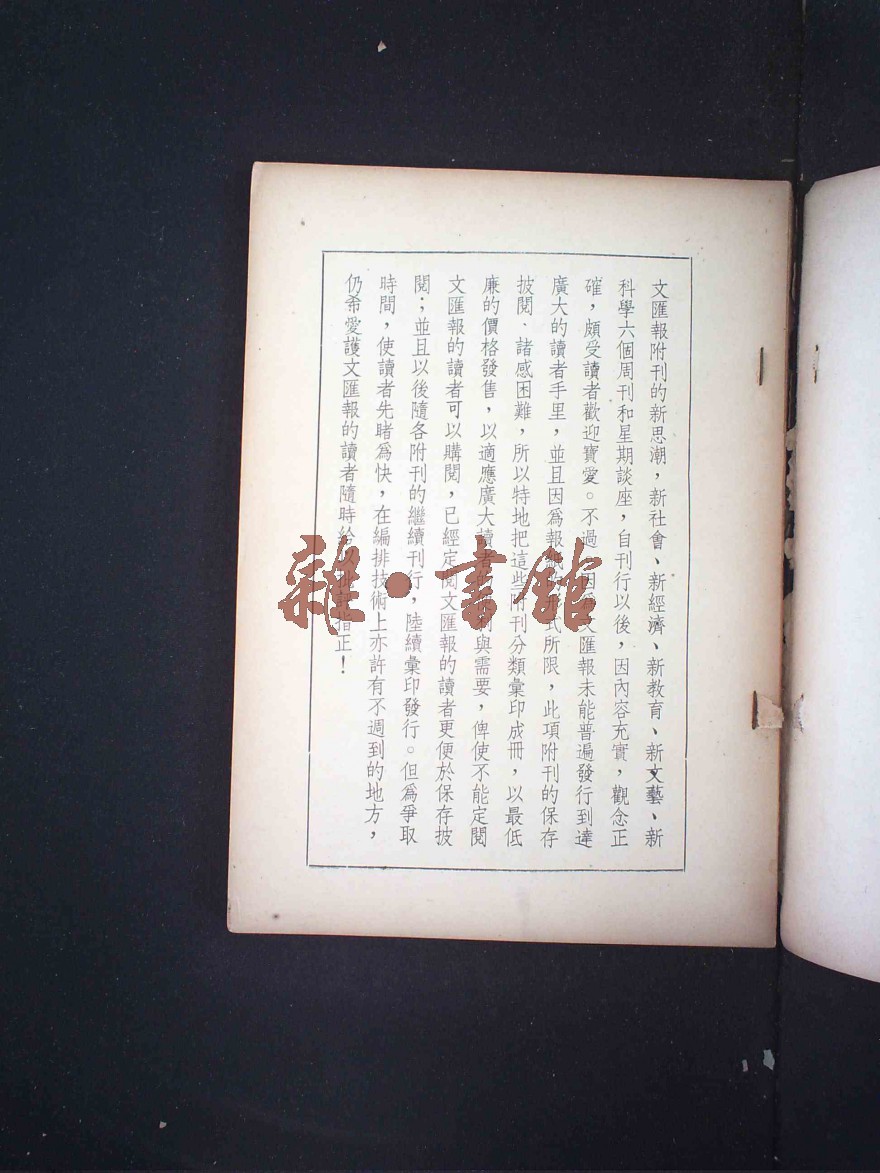 文匯報附刊的新思潮，新社會、新經濟、新教育、新文藝、新
科學六個周刊和星期談座，自刊行以後，因內容充實，觀念正
確，頗受讀者歡迎寶愛。不過，因為文匯報未能普遍發行到達
廣大的讀者手里，並且因爲報紙的形式所限，此項附刊的保存
披閱、諸感困難，所以特地把這些附刊分類彙印成冊，以最低
廉的價格發售，以適應廣大讀者的便利與需要，俾使不能定閱
文匯報的讀者可以購閱，已經定閱文匯報的讀者更便於保存披
閱；並且以後隨各附刊的繼續刊行，陸續彙印發行。但爲爭取
時間，使讀者先睹爲快，在編排技術上亦許有不週到的地方，
仍希愛護文匯報的讀者隨時給以批評指正！
雜·書館